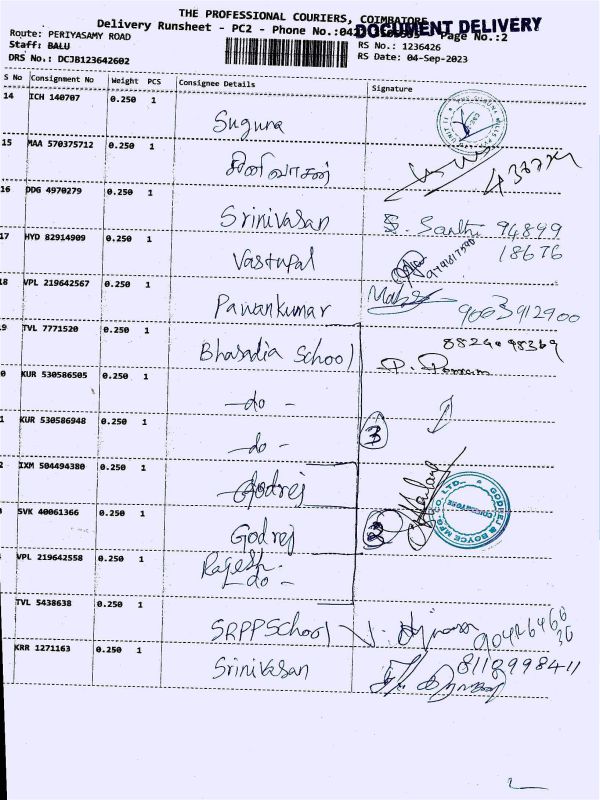 THE PROFESSIONAL COURIERS, COIMBATORE
Delivery Runsheet - PC2 - Phone No.:
DOCUMENT DELIVERY
Page No.:2
Route: PERIYASAMY ROAD
RS No.: 1236426
Staff: BALU
RS Date: 04-Sep-2023
DRS No.: DCJB123642602
S No Consignment No Weight PCS Consignee Details Signature
14 ICH 140707 0.250 1 Suguna
15 MAA 570375712 0.250 1 சீனிவாசன்
16 DDG 4970279 0.250 1 Srinivasan S. Santhi 94899
18676
17 HYD 82914909 0.250 1 Vastupal
18 VPL 219642567 0.250 1 Pawankumar 9003912900
9 TVL 7771520 0.250 1 Bhasadia School
0 KUR 530586505 0.250 1 -do-
1 KUR 530586948 0.250 1 -do- 3
2 IXM 504494380 0.250 1 Godrej
GODREJ & BOYCE MFG. CO. LTD.
COIMBATORE
SVK 40061366 0.250 1 Godrej
VPL 219642558 0.250 1 Rajesh
-do-
TVL 5438638 0.250 1 SRPP School
KRR 1271163 0.250 1 Srinivasan 8118998411